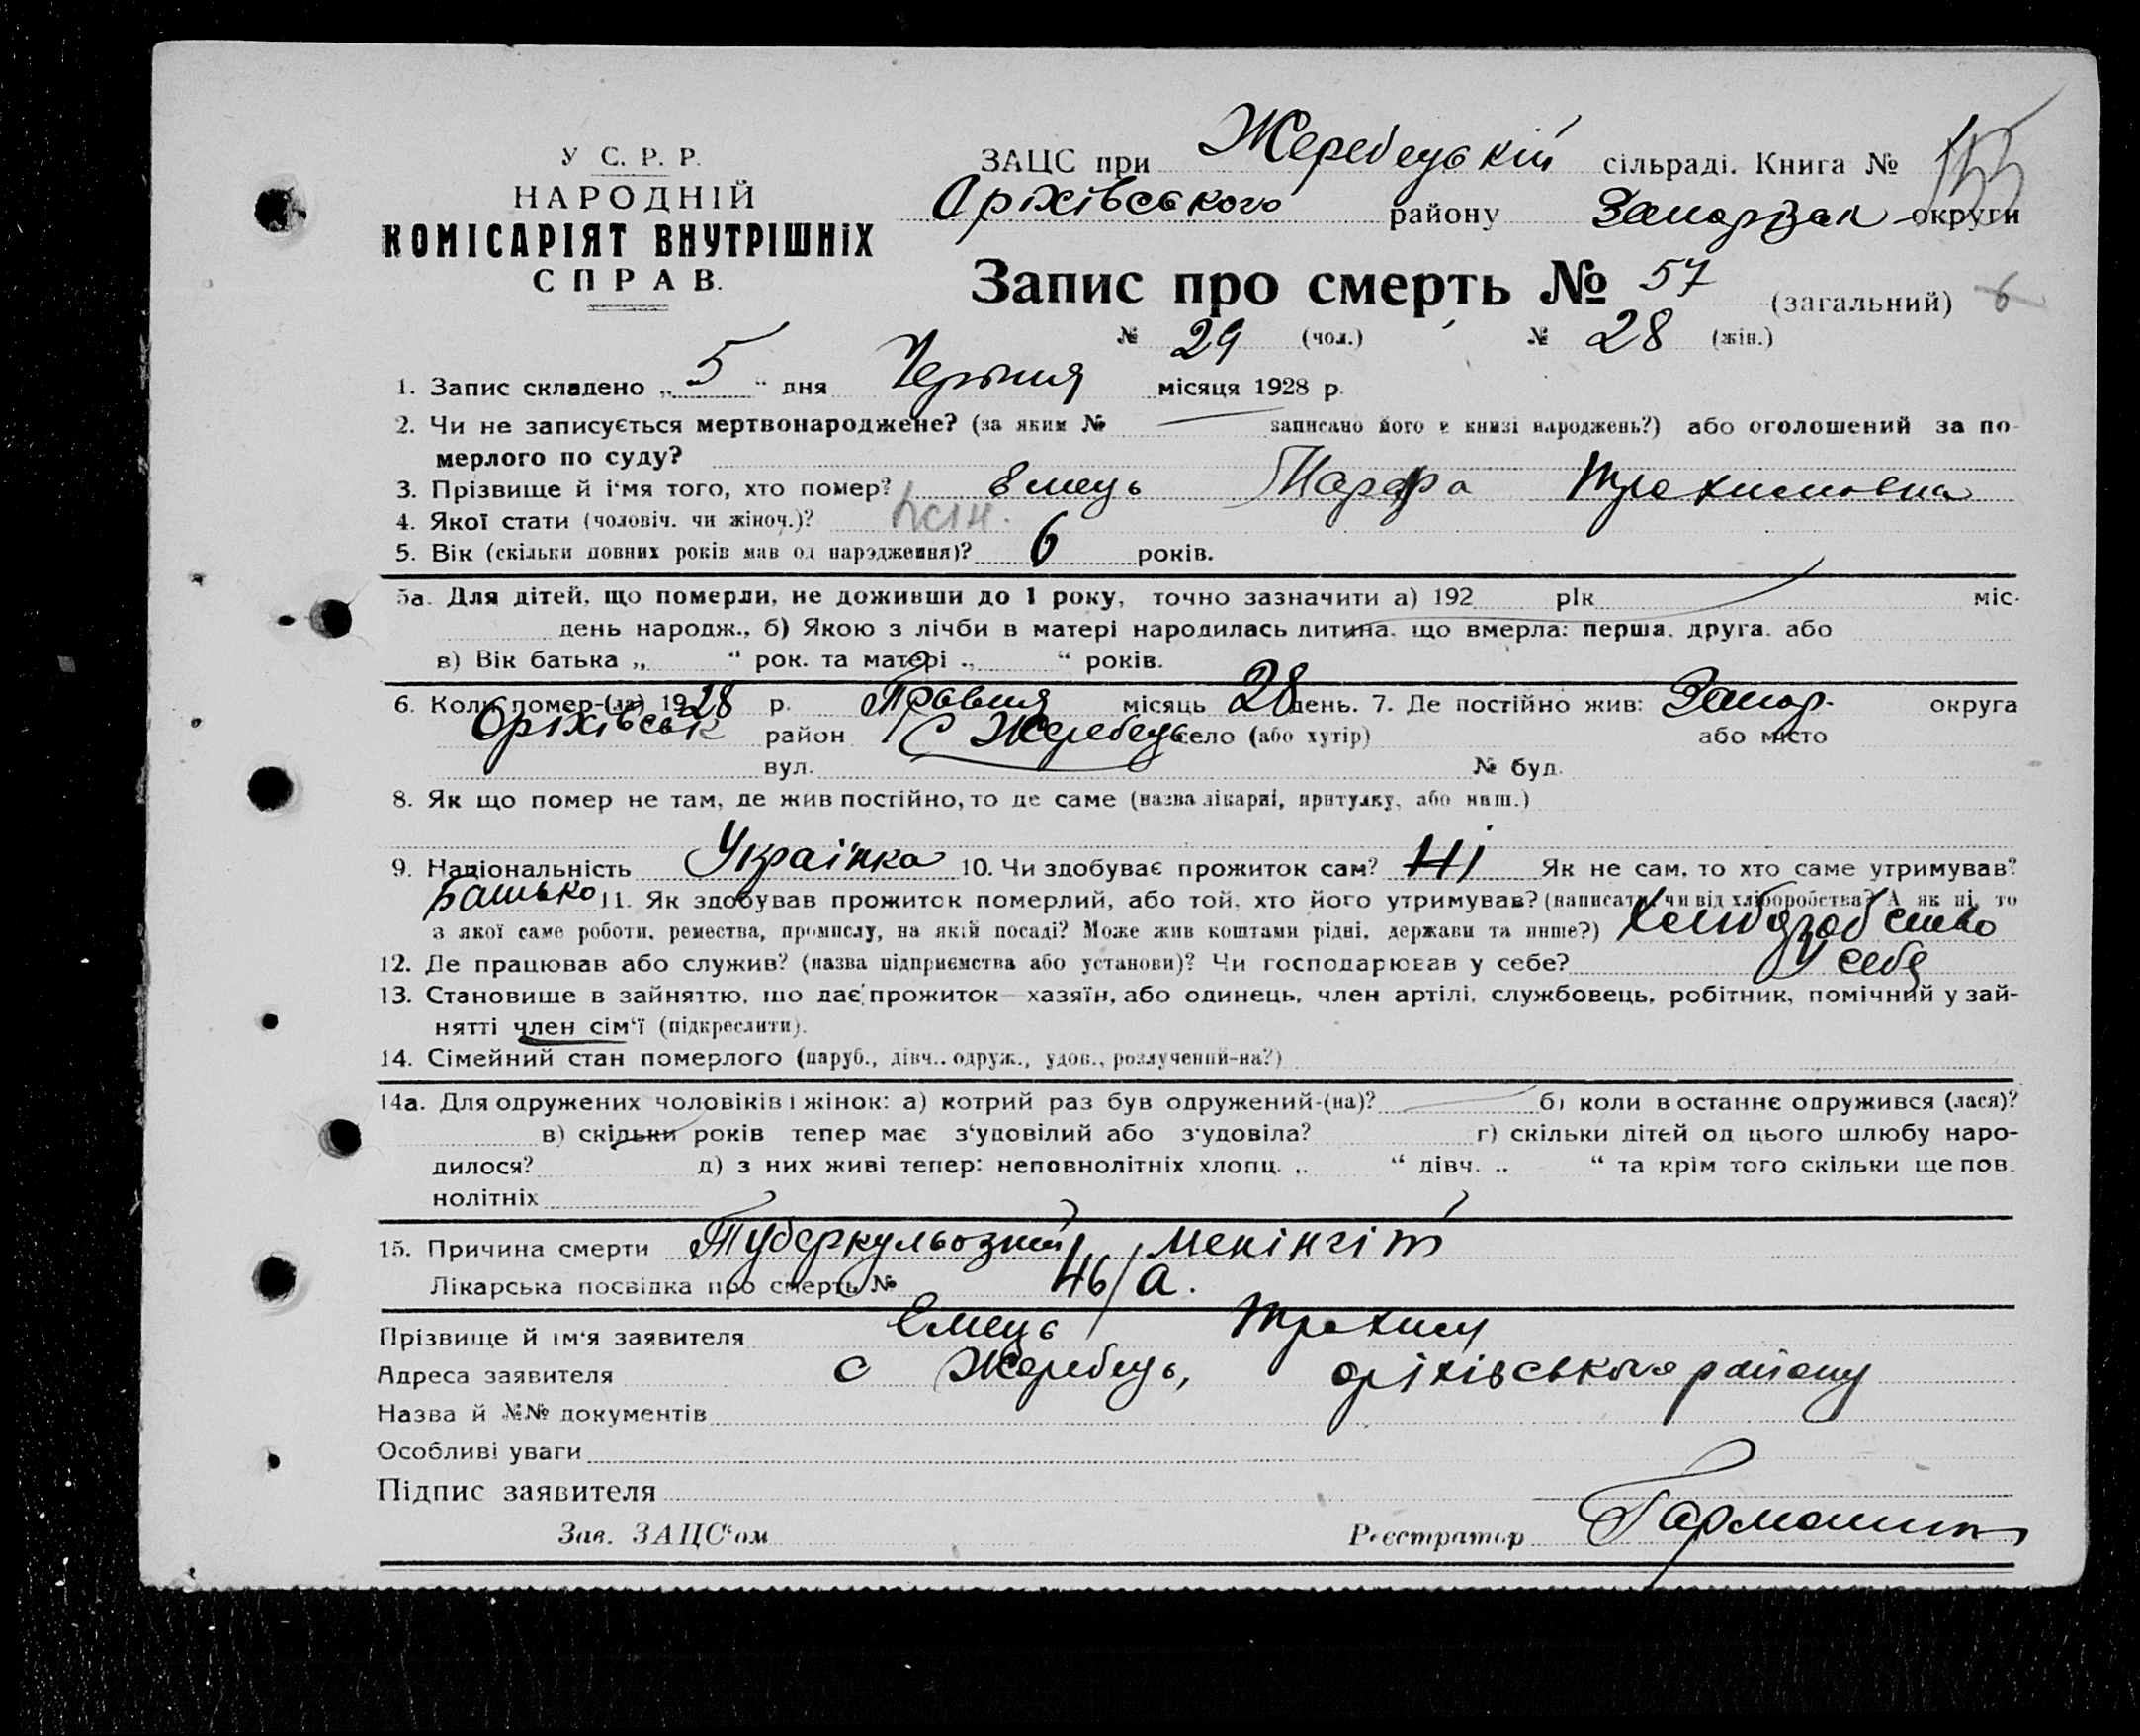 У С. Р. Р.
НАРОДНІЙ
КОМІСАРІЯТ ВНУТРІШНІХ
СПРАВ.
ЗАЦС при Жеребецькій сільраді. Книга №
Оріхівського району Запорізьк округи
Запис про смерть № 57 (загальний) 6
№ 29 (чол.) № 28 (жін.)
1. Запис складено „5“ дня Червня місяця 1928 р.
2. Чи не записується мертвонароджене? (за яким № — записано його в книзі народжень?) або оголошений за по-
мерлого по суду?
3. Прізвище й і'мя того, хто помер? Ємець Марфа Трохимовна
4. Якої стати (чоловіч. чи жіноч.)? жін.
5. Вік (скільки повних років мав од народження)? 6 років.
5а. Для дітей, що померли, не доживши до 1 року, точно зазначити а) 192 рік міс-
день народж., б) Якою з лічби в матері народилась дитина, що вмерла: перша, друга, або
в) Вік батька „ “ рок. та матері „ “ років.
6. Коли помер-(ла) 1928 р. Травня місяць 28 день. 7. Де постійно жив: Запор. округа
Оріхівськ район С Жеребець село (або хутір) або місто
вул. № буд.
8. Як що помер не там, де жив постійно, то де саме (назва лікарні, притулку, або инш.)
9. Національність Українка 10. Чи здобуває прожиток сам? Ні Як не сам, то хто саме утримував?
Батько 11. Як здобував прожиток померлий, або той, хто його утримував? (написати, чи від хліборобства? А як ні, то
з якої саме роботи, ремества, промислу, на якій посаді? Може жив коштами рідні, держави та инше?) Хліборобство
12. Де працював або служив? (назва підприємства або установи)? Чи господарював у себе? У себе
13. Становище в зайняттю, що дає прожиток—хазяїн, або одинець, член артілі, службовець, робітник, помічний у зай-
нятті член сім'ї (підкреслити).
14. Сімейний стан померлого (паруб., дівч., одруж., удов., розлучений-на?)
14а. Для одружених чоловіків і жінок: а) котрий раз був одружений-(на)? б) коли востаннє одружився (лася)?
в) скільки років тепер має з'удовілий або з'удовіла? г) скільки дітей од цього шлюбу наро-
дилося? д) з них живі тепер: неповнолітніх хлопц. „ “ дівч. „ “ та крім того скільки ще пов.
нолітніх
15. Причина смерти Туберкульозний менінгіт
Лікарська посвідка про смерть № 46/а.
Прізвище й ім'я заявителя Ємець Трохим
Адреса заявителя с Жеребець, оріхівського району
Назва й №№ документів
Особливі уваги
Підпис заявителя
Зав. ЗАЦС'ом Реєстратор